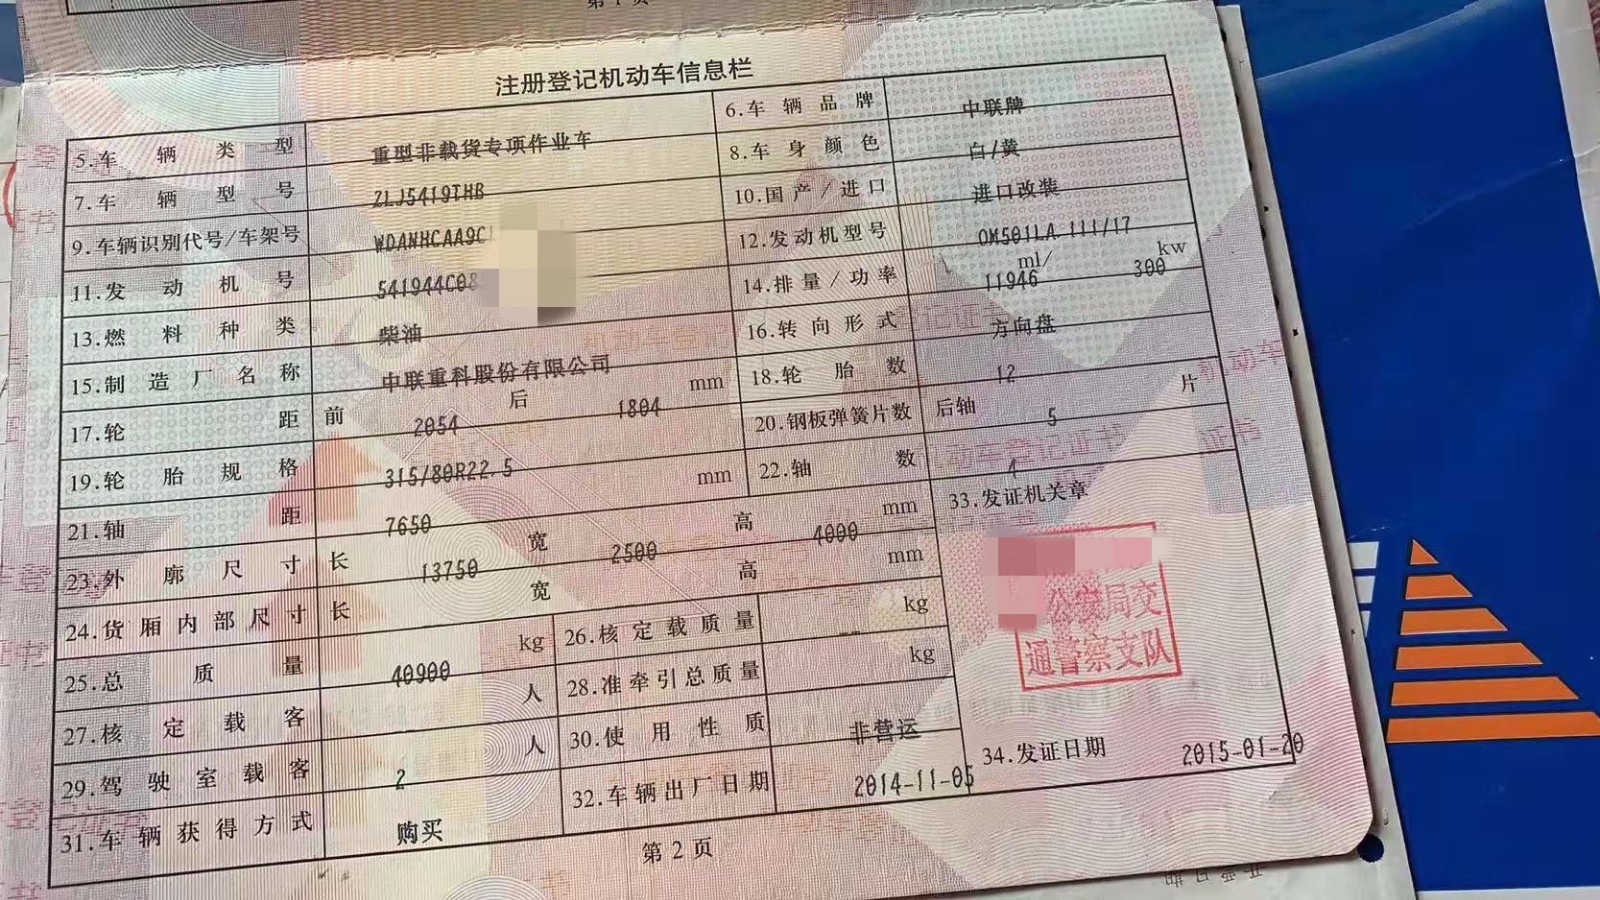 第1页
注册登记机动车信息栏
5.车辆类型 重型非载货专项作业车 6.车辆品牌 中联牌
7.车辆型号 ZLJ5419THB 8.车身颜色 白/黄
9.车辆识别代号/车架号 WDANHCAA9C 10.国产/进口 进口改装
11.发动机号 541944C08 12.发动机型号 OM501LA.III/17
13.燃料种类 柴油 14.排量/功率 11946 ml/ 300 kw
15.制造厂名称 中联重科股份有限公司 16.转向形式 方向盘
17.轮距 前 2054 后 1804 mm 18.轮胎数 12
19.轮胎规格 315/80R22.5 20.钢板弹簧片数 后轴 5 片
21.轴距 7650 mm 22.轴数 4
23.外廓尺寸 长 13750 宽 2500 高 4000 mm 33.发证机关章
24.货厢内部尺寸 长 宽 高 mm
25.总质量 40900 kg 26.核定载质量 -- kg
27.核定载客 人 28.准牵引总质量 kg
29.驾驶室载客 2 人 30.使用性质 非营运
31.车辆获得方式 购买 32.车辆出厂日期 2014-11-05 34.发证日期 2015-01-20
公安局交
通警察支队
第2页